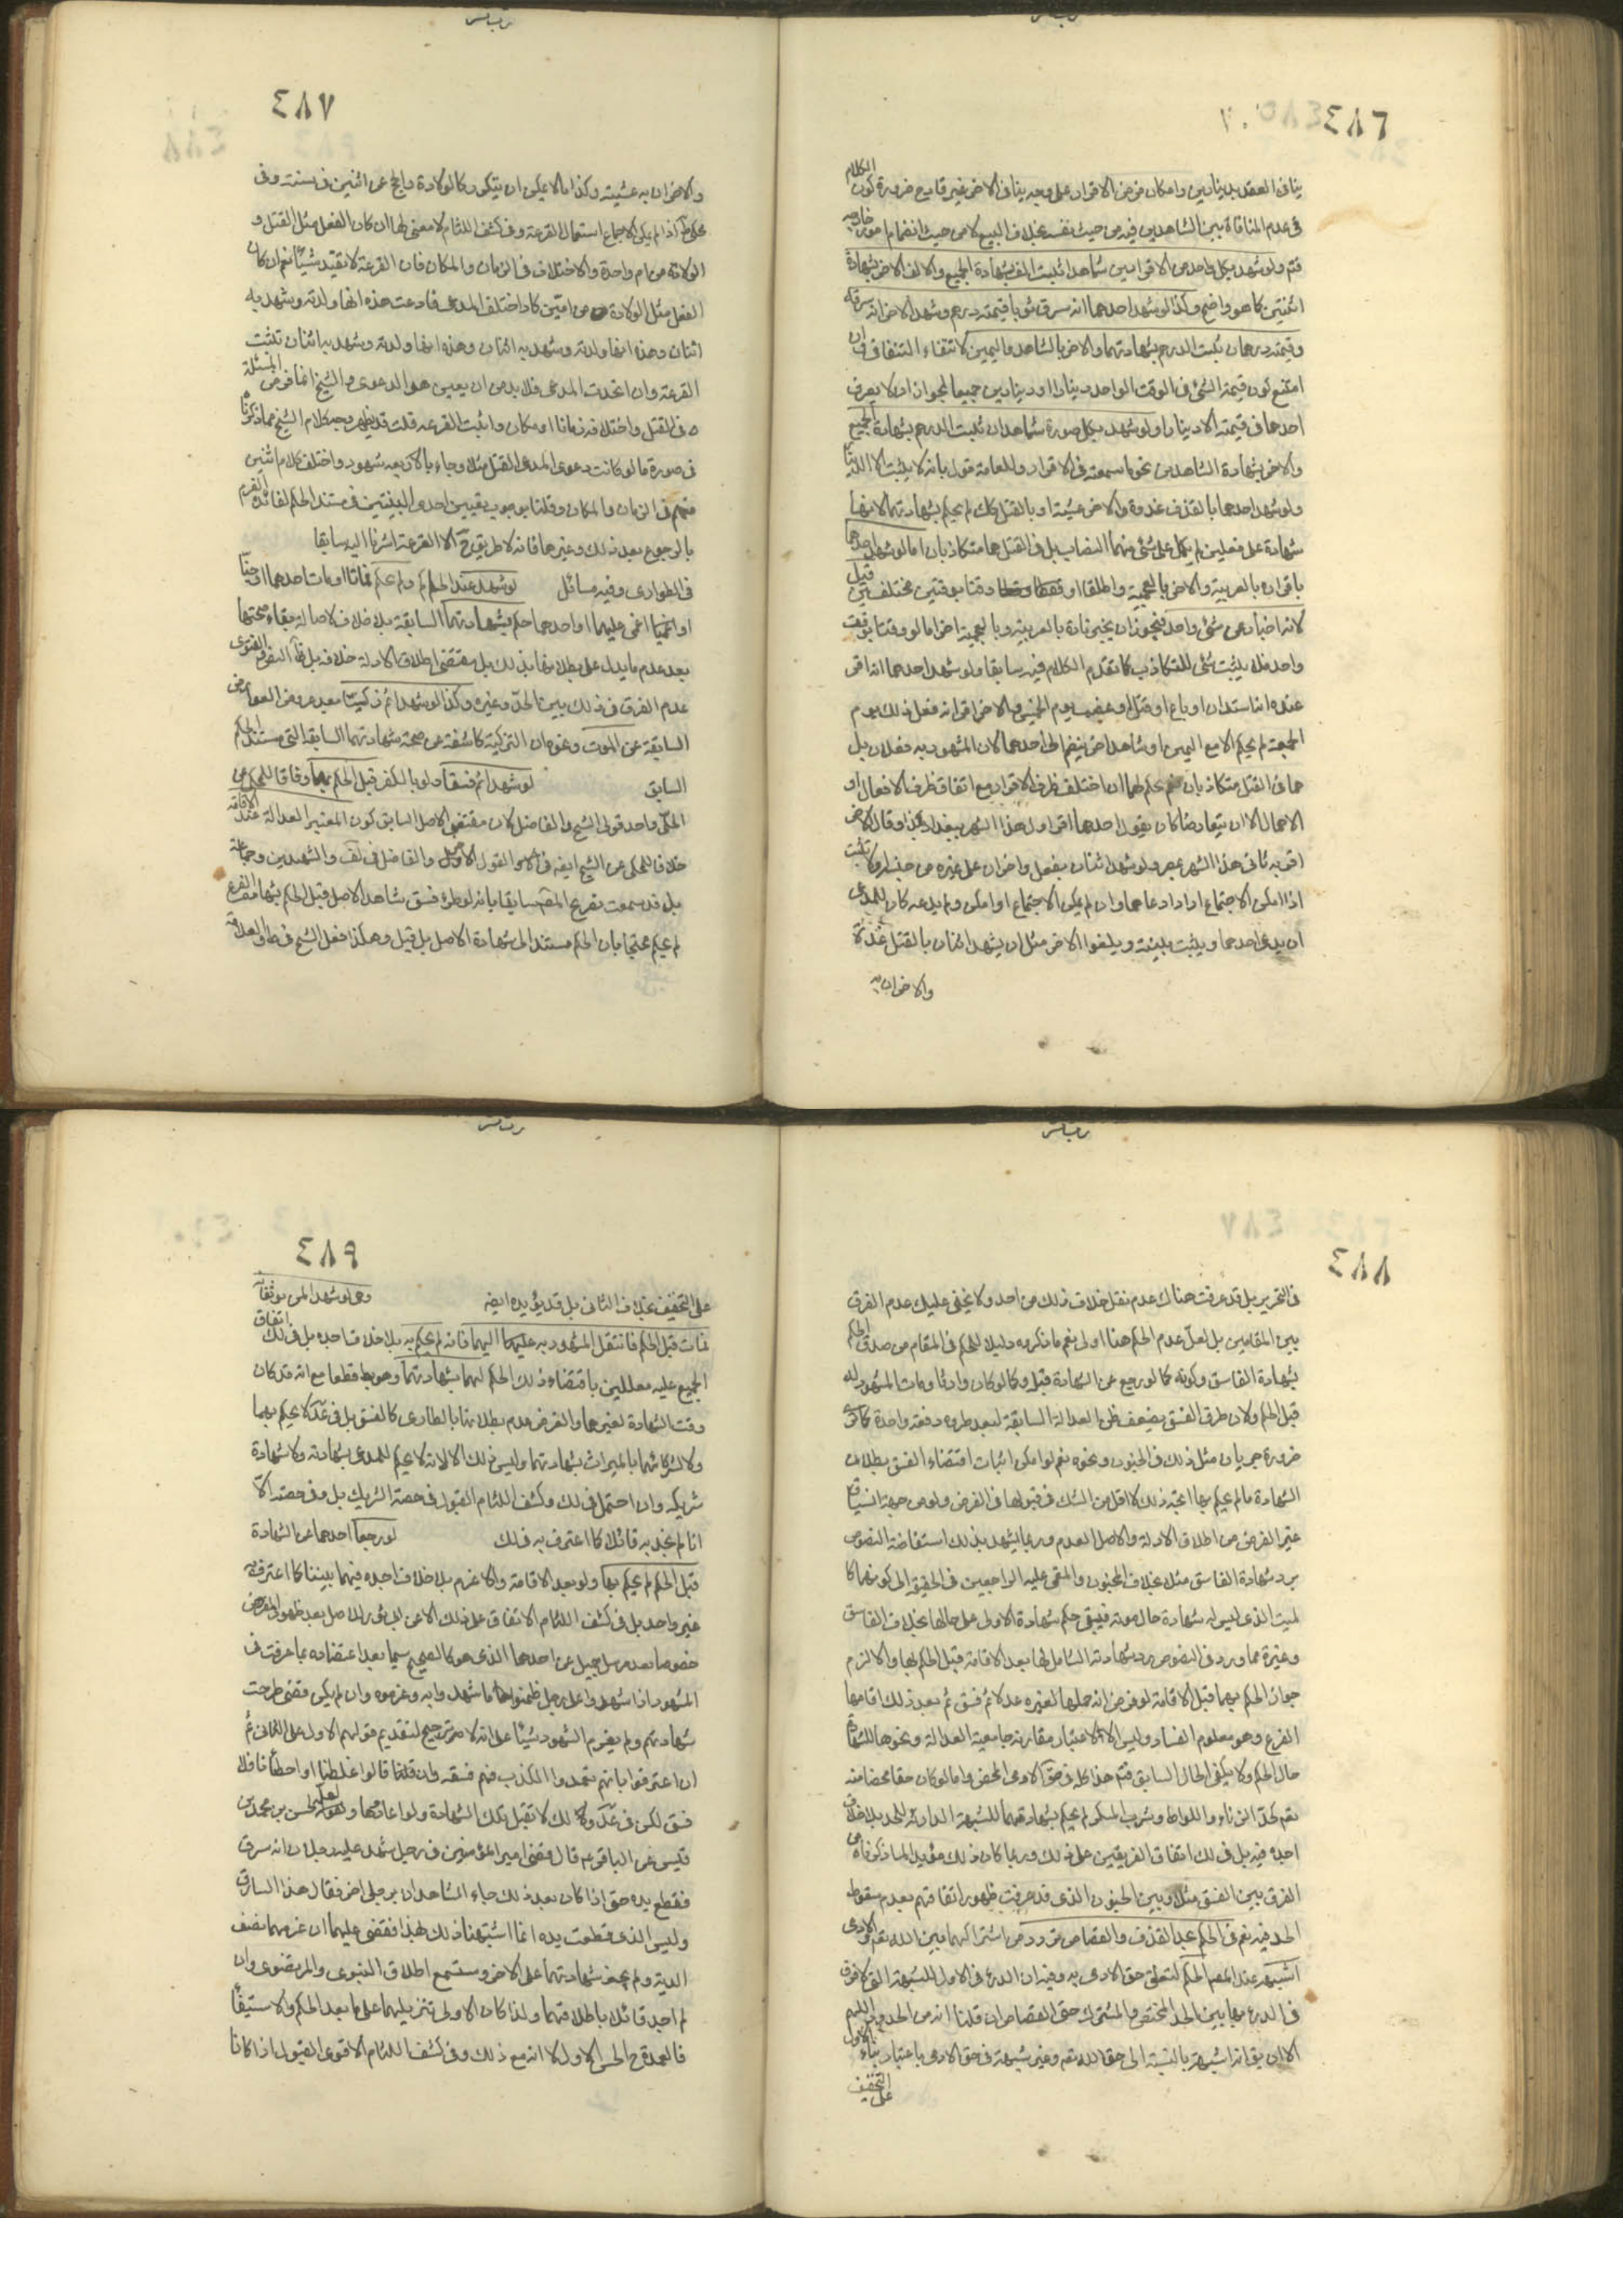 ٤٨٦
ينافي العقد بدينارين وامكان فرض الاقرار على وجه ينافي الاخر غير قادح ضرورة كون الكلام
في عدم المنافاة بين الشاهدين فيه من حيث نفسه بخلاف البيع لا من حيث انضمام امور خارجه
فتم ولو شهد بكل واحد من الاقرارين شاهدا ثبت الف بشهادة الجميع والالف الاخر بشهادة
اثنتين كما هو واضح وكذا لو شهد احدهما انه سرق ثوبا قيمته درهم وشهد الاخر انه سرقه
وقيمته درهمان ثبت الدرهم بشهادتهما والاخر بالشاهد واليمين لانتفاء التنافي فان
امتنع كون قيمة الشئ في الوقت الواحد دينارا او دينارين جميعا لجواز ان لا يعرف
احدهما في قيمته الا دينارا ولو شهد بكل صورة شاهدان ثبت الدرهم بشهادة الجميع
والاخر بشهادة الشاهدين نحو ما سمعته في الاقرار وللعامة قول بانه لا يثبت الا
ولو شهد احدهما بالقذف غدوة والاخر عشية او بالقتل كك لم يحكم بشهادتهما لانها
شهادة على فعلين لم يكمل على شئ منهما النصاب بل في القتل هما متكاذبان اما لو شهد احدهما
باقراره بالعربية والاخر بالعجمية واطلقا او وقتا بوقتين مختلفين قبل
لانه اخبار عن شئ واحد فيجوز ان يخبر تارة بالعربية وبالعجمية اخرى اما لو وقتا بوقت
واحد فلا يثبت شئ للتكاذب كما تقدم الكلام فيه سابقا ولو شهد احدهما انه اقر
عنده انه استدان او باع او قتل او غصب يوم الخميس والاخر اقر انه فعل ذلك يوم
الجمعة لم يحكم الا مع اليمين او شاهد اخر ينضم الى احدهما لان المشهود به فعلان بل
هما في القتل متكاذبان نعم يحكم لهما ان اختلف ظرف الاقرار مع اتفاق ظرف الافعال او
الاجمال الا ان يتعارضا كان يقول احدهما اقر اول هذا الشهر ببغداد بكذا وقال الاخر
اقر به ثاني هذا الشهر بمصر ولو شهد اثنان بفعل واخران على غيره من جنسه او لا ثبت
اذا امكن الاجتماع اراد ادعاهما وان لم يكن الاجتماع او امكن ولم يدعه كان للمدعى
ان يدعى احدهما ويثبت ببينة ويلغوا الاخر مثل ان يشهد اثنان بالقتل غدوة
والاخران به
٤٨٧
والاخران به عشية وكذا ما لا يمكن ان يتكرر كالولادة والحج عن اثنين في سنة وفي
محكي ط اذا لم يكن الاجماع استعمال القرعة وفي كشف اللثام لا معنى لها ان كان الفعل مثل القتل و
الولادة من ام واحدة والاختلاف في الزمان والمكان فان القرعة لا تفيد شيئا نعم ان كان
الفعل مثل الولادة من امين كان اختلف المدعى فادعت هذه انها ولدته وشهد به
اثنان وهذه انها ولدته وشهد به اثنان وهذه انها ولدته وشهد به اثنان ثبتت
القرعة وان اتحدت المدعى فلا بد من ان يعين هو الدعوى والشيخ انما فرض المسئلة
في القتل واختلافه زمانا او مكان واثبت القرعة قلت قد يظهر وجه كلام الشيخ مما ذكرنا
في صورة ما لو كانت دعوى المدعى القتل مثلا وجاء بالاربعة شهود واختلف كلام اثنين
منهم في الزمان والمكان وقلنا بوجوب تعيين احدى البينتين في مستند الحكم لفائدة الغرم
بالرجوع بعد ذلك وغيرها فانه لا طريق ح الا القرعة اشرنا اليه سابقا
في الطوارى وفيه مسائل لو شهد عند الحاكم ولم يحكم فماتا او مات احدهما او جنا
او اغمي عليهما او احدهما حكم بشهادتهما السابقة بلا خلاف لاصالة بقاء صحتها
بعد عدم ما يدل على بطلانها بذلك بل مقتضى اطلاق الادلة خلافه بل ظ النص والفتوى
عدم الفرق في ذلك بين الحد وغيره وكذا لو شهدا ثم زكيا بعد عروض العوارض
السابقة من الموت ونحوه لان التزكية كاشفة عن صحة شهادتهما السابقة التي مستند الحكم
السابق لو شهدا ثم فسقا ولو بالكفر قبل الحكم بهما وفاقا للمحكي عن
الحلي واحد قولى الشيخ والفاضل لان مقتضى الاصل السابق كون المعتبر العدالة عند الاقامة
خلافا للمحكي عن الشيخ ايضه في القول الاول والفاضل في لف والشهيدين وجماعة
بل قد سمعت تفريع المص سابقا بانه لو طرئ فسق شاهد الاصل قبل الحكم بشهادة الفرع
لم يحكم محتجا بان الحكم مستند الى شهادة الاصل بل قيل وهكذا فعل الشيخ في ط والعلامة
٤٨٨
في التحرير بل قد عرفت هناك عدم نقل خلاف ذلك من احد ولا يخفى عليك عدم الفرق
بين المقامين بل لعل عدم الحكم هنا اولى نعم ما ذكروه دليلا للحكم في المقام من صدق الحكم
بشهادة الفاسق وكونه كما لو رجع عن الشهادة قبل وكما لو كان وارثا ومات المشهود له
قبل الحكم ولان طرق الفسق يضعف ظن العدالة السابقة لبعد طروه دفعة واحدة كما ترى
ضرورة جريان مثل ذلك في الجنون ونحوه نعم لو امكن اثبات اقتضاء الفسق بطلان
الشهادة ما لم يحكم بها اتجه ذلك لا اقل من الشك في قبولها في الفرض ولو من جهة انسياق
غير الفرض من اطلاق الادلة والاصل العدم وربما يشهد بذلك استفاضة النصوص
برد شهادة الفاسق مثلا بخلاف المجنون والمغمى عليه الراجعين في الحقيقة الى كونهما كا
لميت الذي ليس له شهادة حال موته فيبقى حكم شهادة الاولى على حالها بخلاف الفاسق
وغيره مما ورد في النصوص برد شهادته الشامل لها بعد الاقامة قبل الحكم بها والا لزم
جواز الحكم بهما قبل الاقامة لو فرض انه حملها لغيره عدلا ثم فسق ثم بعد ذلك اقامها
الفرع وهو معلوم الفساد وليس الا لاعتبار مقارنة جامعية العدالة ونحوها للشهادة
حال الحكم ولا يكفى الحال السابق فتم هذا كله في حق الادمي المحض واما لو كان حقا محضا منه
تعم كحد الزناء واللواط وشرب المسكر لم يحكم بشهادتهما للشبهة الدارئة للحد بلا خلاف
اجده فيه بل في لك اتفاق الفريقين على ذلك وربما كان ذلك مؤيدا لما ذكرناه من
الفرق بين الفسق مثلا وبين الجنون الذي قد عرفت ظهور اتفاقهم بعدم سقوط
الحد فيه نعم في الحكم بحد القذف والقصاص تردد من اشتراكهما مبين الله تعم والادمى
اشبهه عند المص الحكم لتعلق حق الادمي به وفيه ان الدرء في الاول للشبهة التي لا فرق
في الدرء بها بين الحد المختص والمشترك حتى القصاص ان قلنا انه من الحدود اللهم
الا ان يق انه اشبهه بالنسبة الى حق الله تعم وغير شبهة في حق الادمي باعتبار بناء الاول
على التخفيف
٤٨٩
على التخفيف بخلاف الثاني بل قد يؤيده ايضه وهى لو شهدا لمن يرثانه
فمات قبل الحكم فانتقل المشهود به اليهما فانه لم يحكم به بلا خلاف اجده بل في لك اتفاق
الجميع عليه معللين باقتضاء ذلك الحكم لهما بشهادتهما وهو بط قطعا مع انه قد كان
وقت الشهادة لغيرهما والفرض عدم بطلانها بالطارى كالفسق بل في عد لا يحكم بهما
ولا لشركائهما بالميراث بشهادتهما وليس ذلك الا لانه لا يحكم للمدعى بشهادته ولا شهادة
شريكه وان احتمل في لك وكشف اللثام القبول في حصة الشريك بل وفي حصته الا
انا لم نجد به قائلا كما اعترف به في لك لو رجعا احدهما عن الشهادة
قبل الحكم لم يحكم بها ولو بعد الاقامة ولا غرم بلا خلاف اجده فيهما بيننا كما اعترف به
غير واحد بل في كشف اللثام الاتفاق على ذلك الا عن ابي ثور للاصل بعد ظهور
خصوصا بعد مرسل جميل عن احدهما الذي هو كالصحيح سيما بعد اعتضاده بما عرفت في
الشهود اذا شهدوا على رجل ثم رجعوا عن ما شهدوا به وغرموه وان لم يكن قضى طرحت
شهادتهم ولم يغرم الشهود شيئا على انه لا ترجيح لتقديم قولهم الاول على الثاني ثم
ان اعترفوا بانهم تعمدوا الكذب فهم فسقه وان قالوا غلطنا او اخطأنا فلا
فسق لكن في عد ولك لا تقبل تلك الشهادة ولو اعادوها ولعله لحسن بن محمد بن
قيس عن الباقر ع قال قضى امير المؤمنين في رجل شهد عليه رجلان انه سرق
فقطع يده حتى اذا كان بعد ذلك جاء الشاهدان برجل اخر فقال هذا السارق
وليس الذي قطعت يده انما اشتبهنا ذلك بهذا فقضى عليهما ان غرمهما نصف
الدية ولم يجز شهادتهما على الاخر وستسمع اطلاق النبوى والمرتضوى وان
لم اجد قائلا باطلاقهما ولذا كان الاولى تنزيلهما على ما بعد الحكم والاستيفاء
فالعمدة ح الحسن الاول لا انه مع ذلك وفي كشف اللثام الاقوى القبول اذا كانا